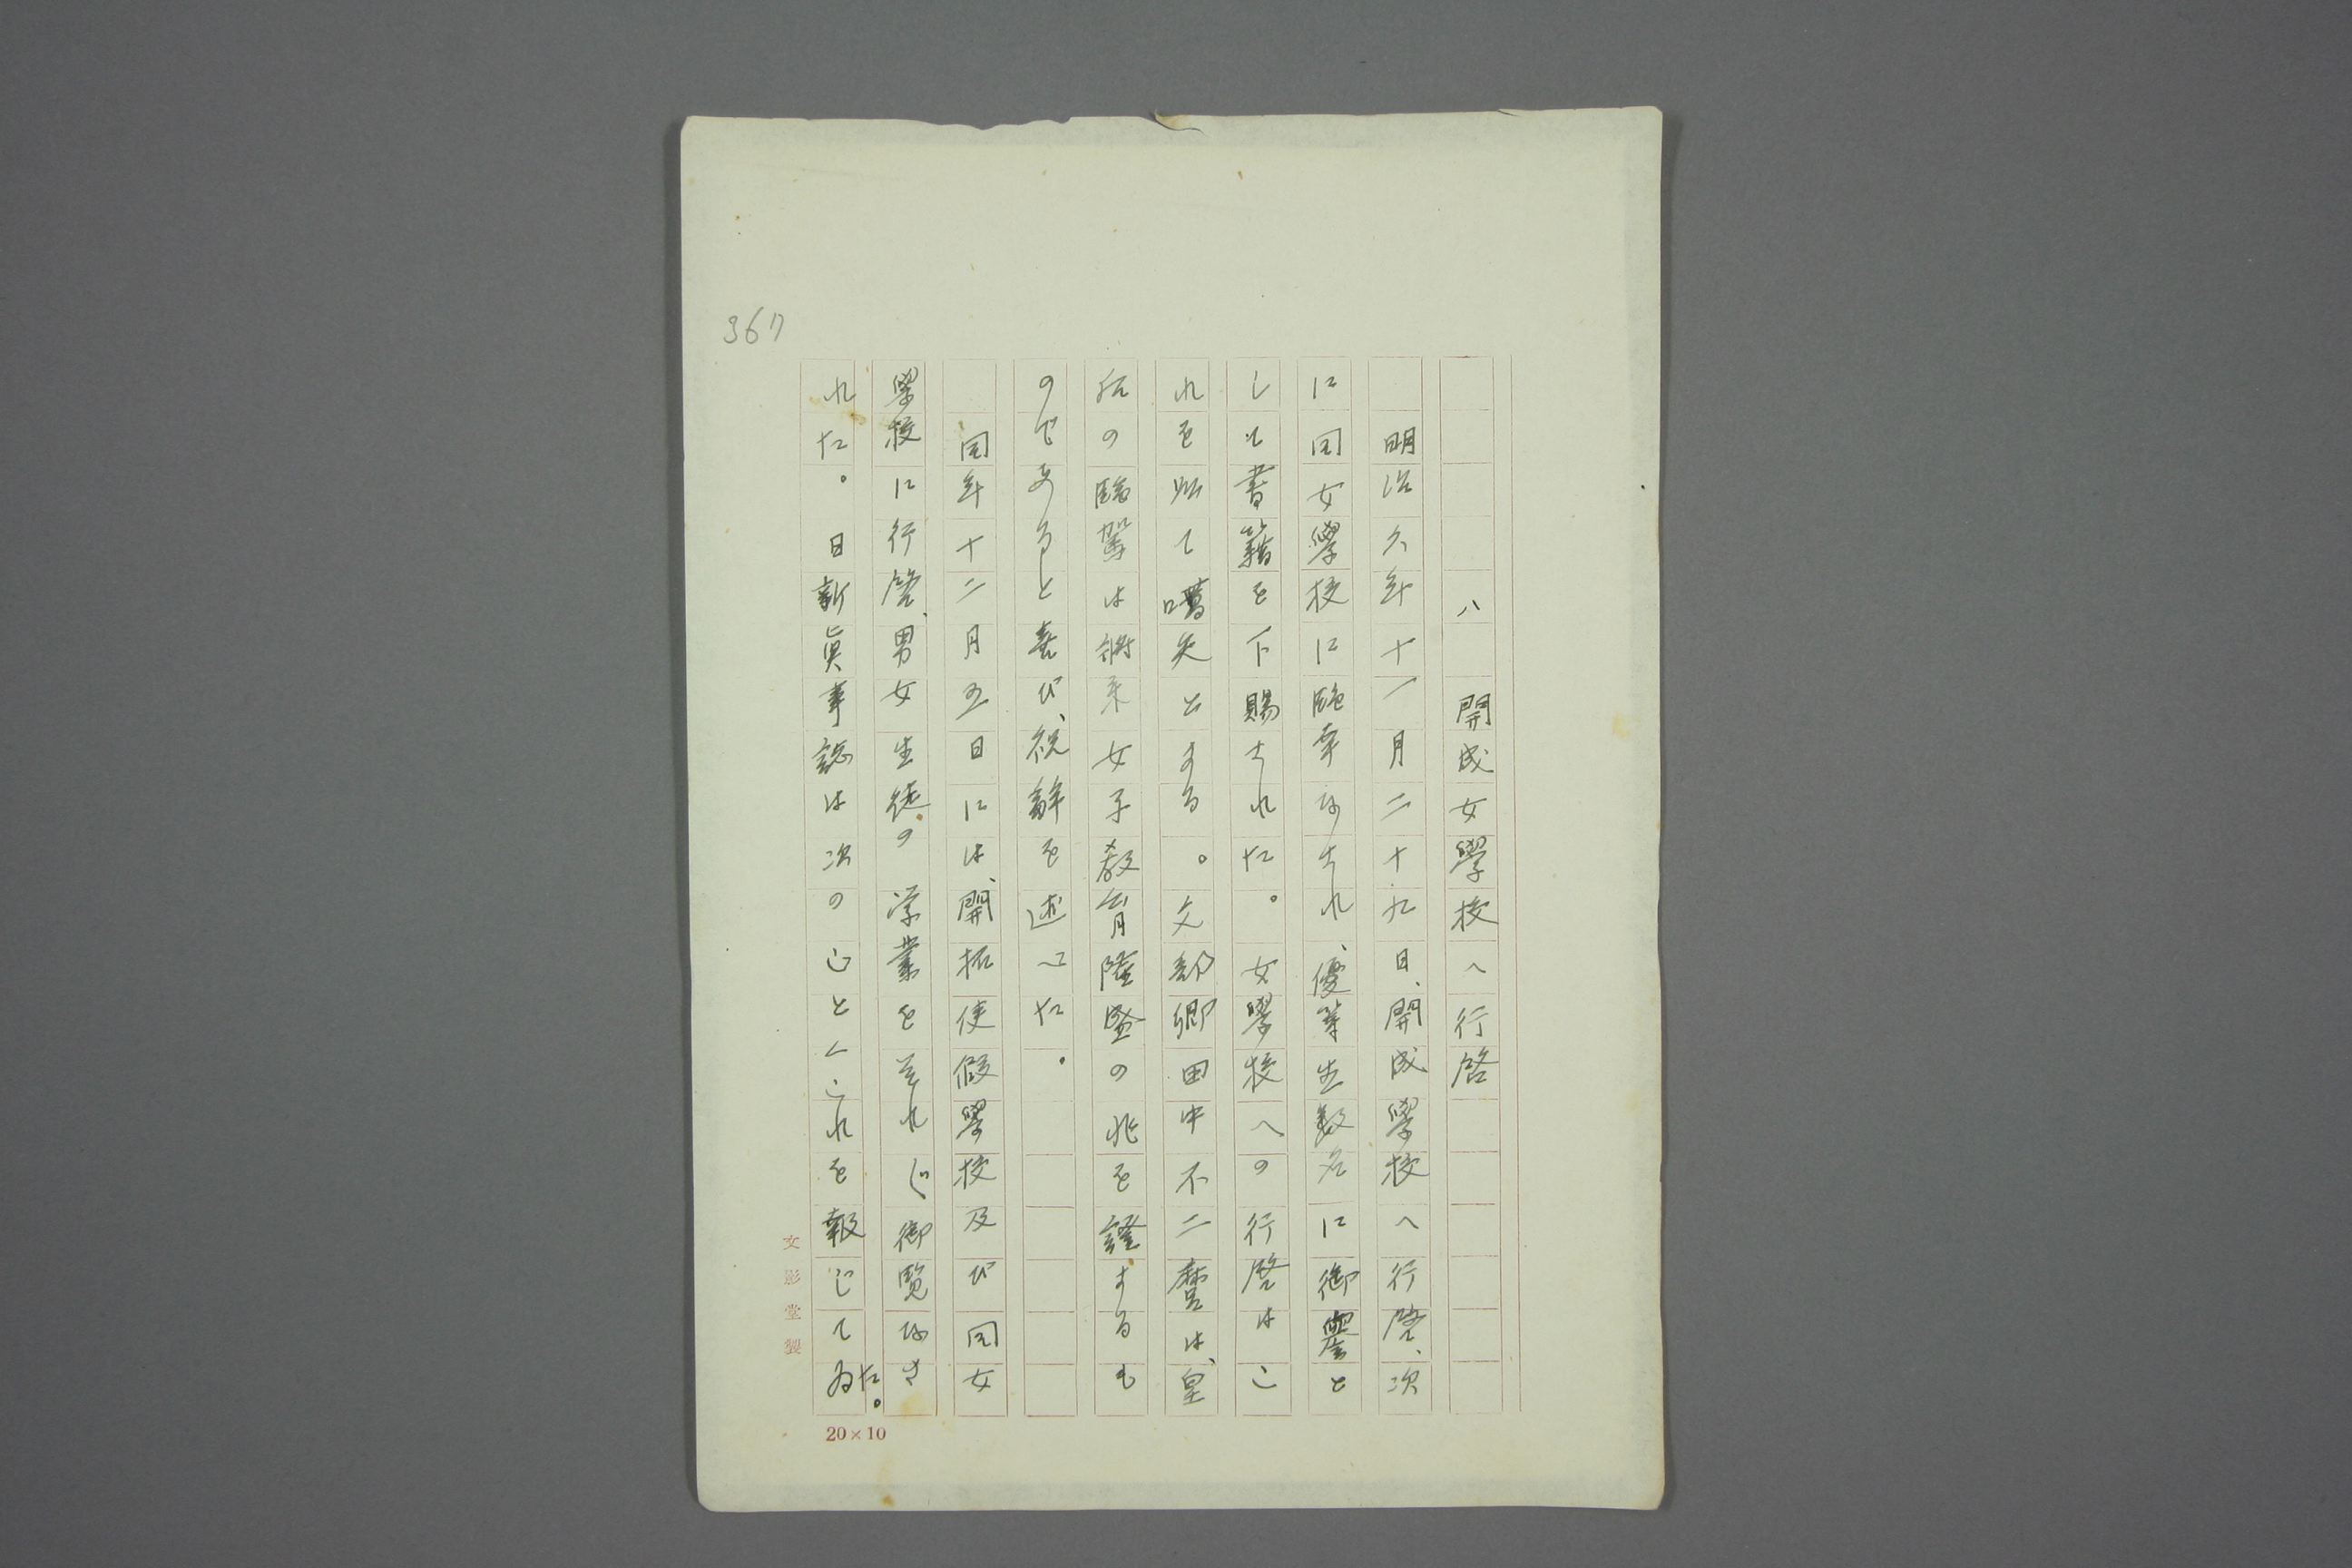 367
八　開成女學校へ行啓
明治六年十一月二十九日、開成學校へ行啓、次
に同女學校に臨幸なされ、優等生数名に御褒と
して書籍を下賜された。女學校への行啓はこ
れを以て嚆矢とする。文部卿田中不二麿は、皇
后の臨駕は将来女子教育隆盛の兆を證するも
のであると喜び、祝辞を述べた。
同年十二月五日には、開拓使假學校及び同女
學校に行啓、男女生徒の学業をそれぞれ御覧なさ
れた。日新眞事誌は次のごとくこれを報じてゐた。
文影堂製
20×10